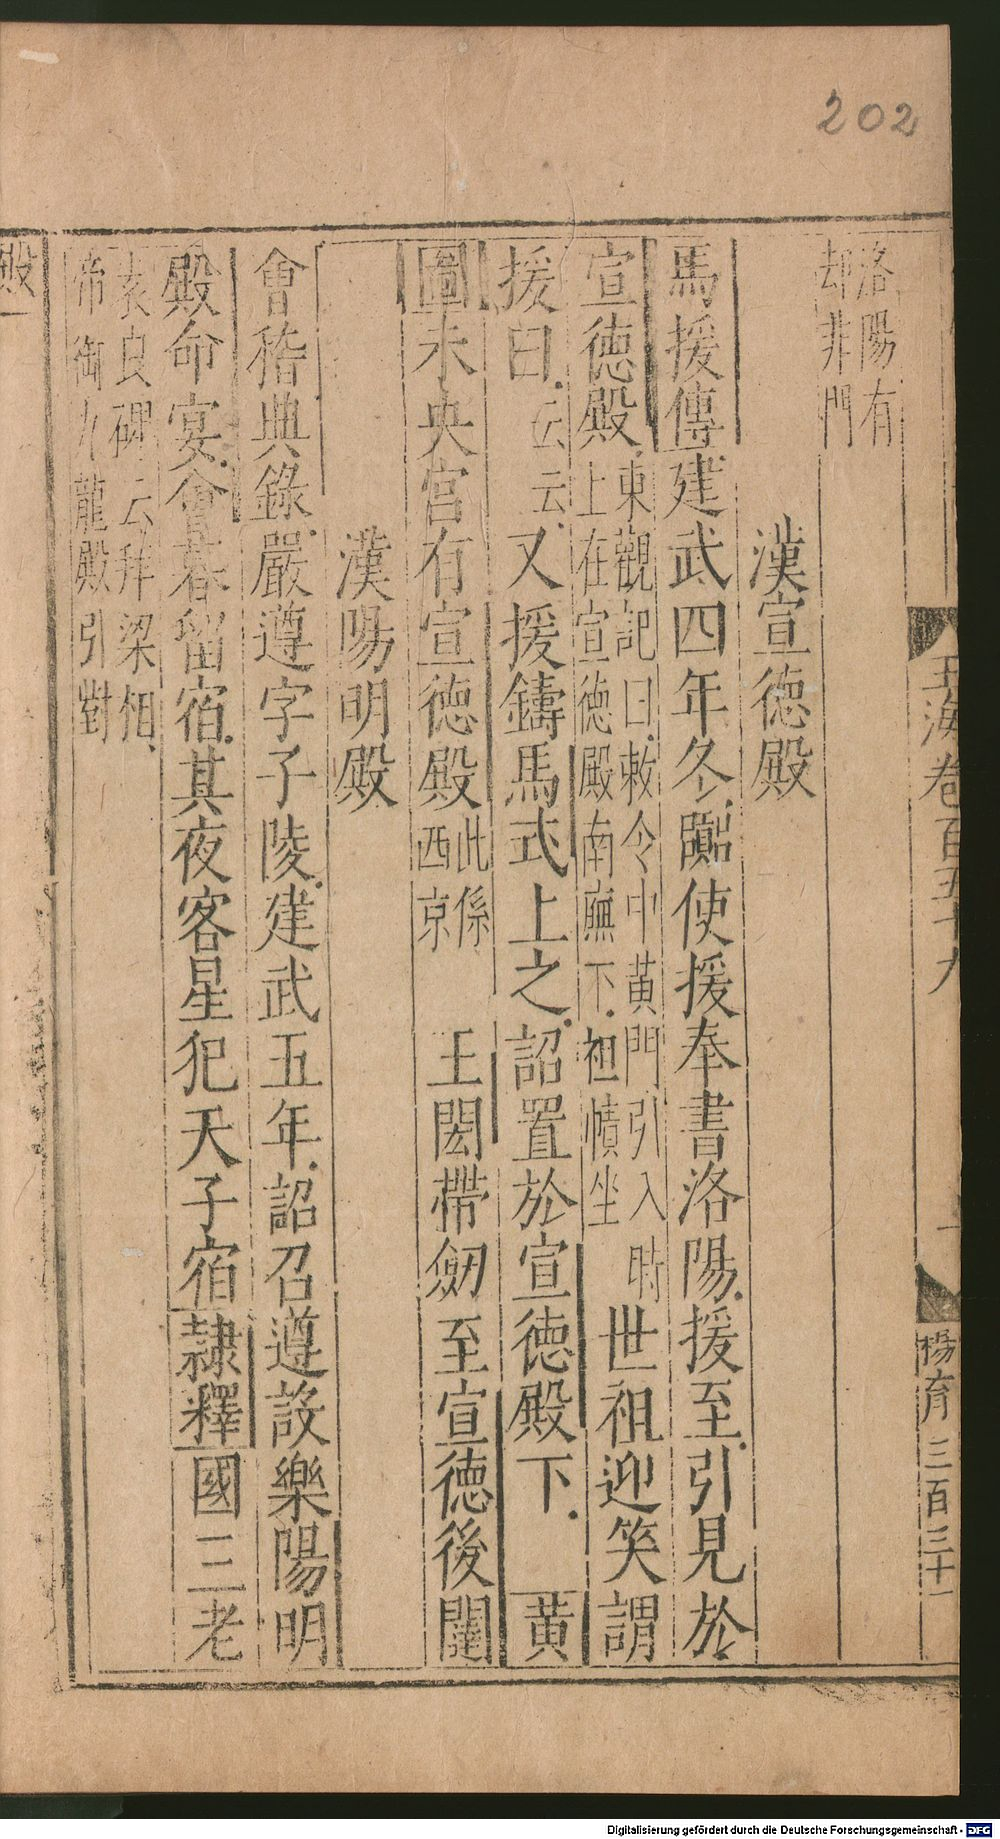 202
玉海卷百五十九
一
楊育
三百三十一
洛陽有
却非門
漢宣德殿
馬援傳建武四年冬囂使援奉書洛陽援至引見於
宣德殿
東觀記曰敕令中黃門引入時
上在宣德殿南廡下袒幘坐
世祖迎笑謂
援曰云云又援鑄馬式上之詔置於宣德殿下 黃
圖未央宮有宣德殿
此係
西京
王閎帶劒至宣德後闥
漢陽明殿
會稽典錄嚴遵字子陵建武五年詔召遵設樂陽明
殿命宴會暮留宿其夜客星犯天子宿隸釋國三老
袁良碑云拜梁相
帝御九龍殿引對
殿
Digitalisierung gefördert durch die Deutsche Forschungsgemeinschaft - DFG